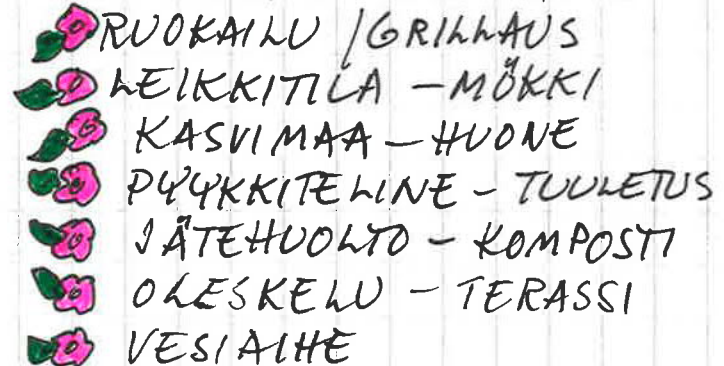 RUOKAILU / GRILLAUS
LEIKKITILA – MÖKKI
KASVIMAA – HUONE
PYYKKITELINE – TUULETUS
JÄTEHUOLTO – KOMPOSTI
OLESKELU – TERASSI
VESIAIHE